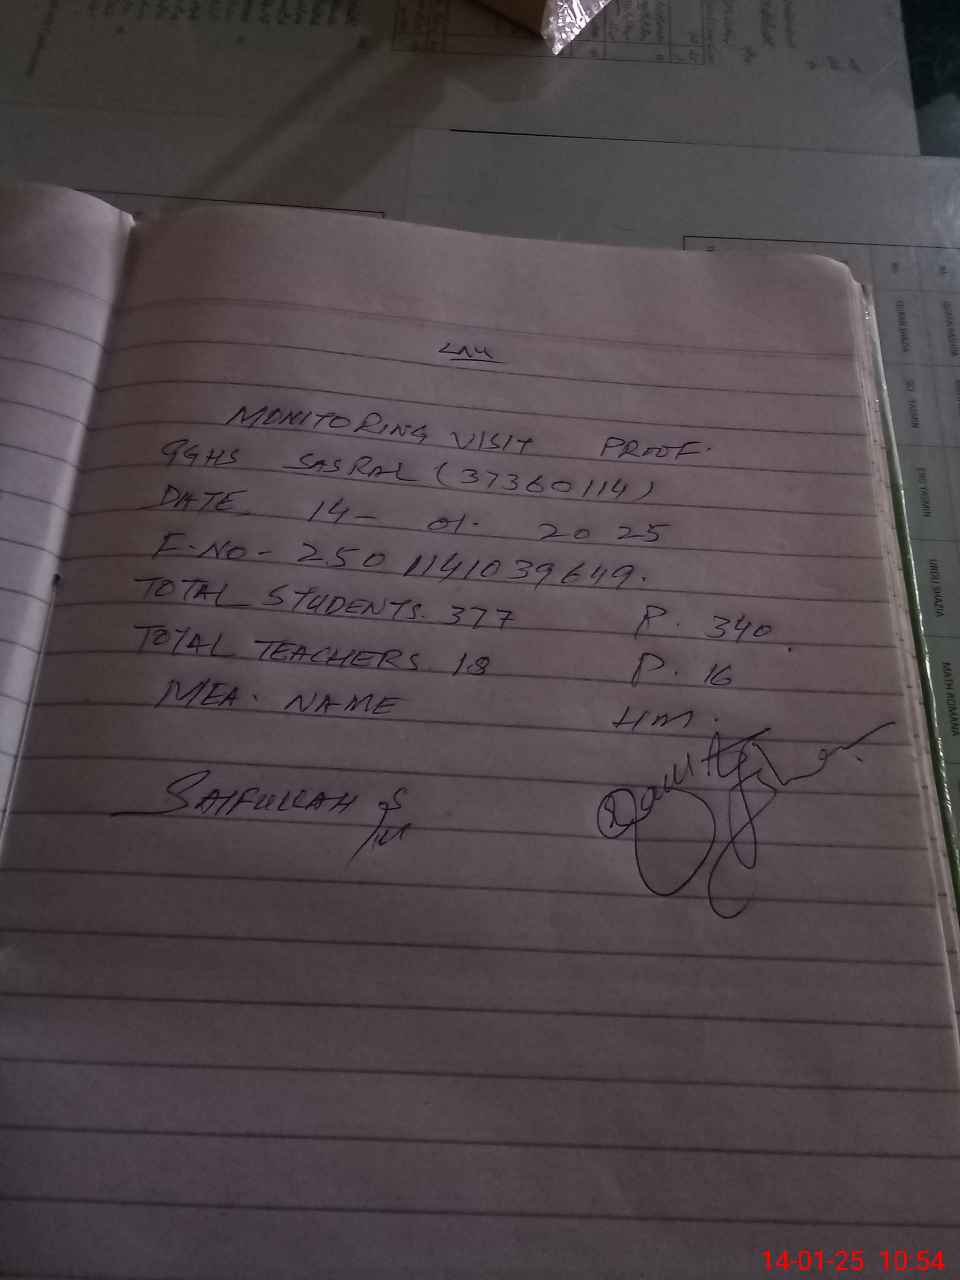 MONITORING VISIT PROOF.
GGHS SASRAL (37360114)
DATE. 14- 01- 2025
F.NO- 2501141039649.
TOTAL STUDENTS. 377 P. 340.
TOTAL TEACHERS. 18 P. 16
MEA. NAME HM.
SAIFULLAH
14-01-25 10:54